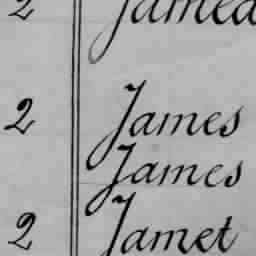 2 Jamed
2 James
James
2 Jamet